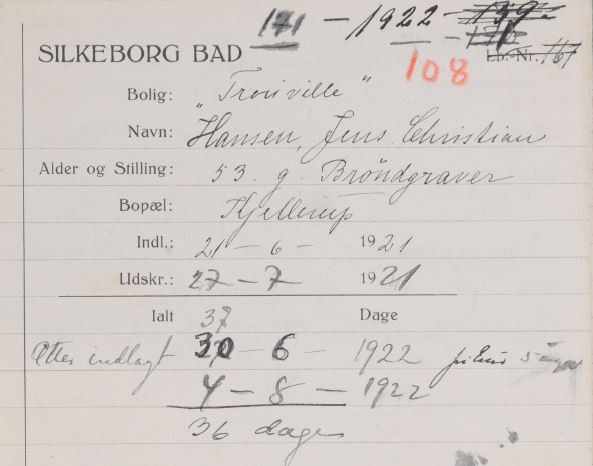 171 - 1922 - 139.
SILKEBORG BAD
108
Lb.-Nr. 167
Bolig: „Trouville"
Navn: Hansen, Jens Christian
Alder og Stilling: 53. g. Bröndgraver
Bopæl: Kjellerup
Indl.: 21 - 6 - 1921
Udskr.: 27 - 7 1921
Ialt 37 Dage
Atter indlagt 30 - 6 - 1922
4 - 8 - 1922
36 dage